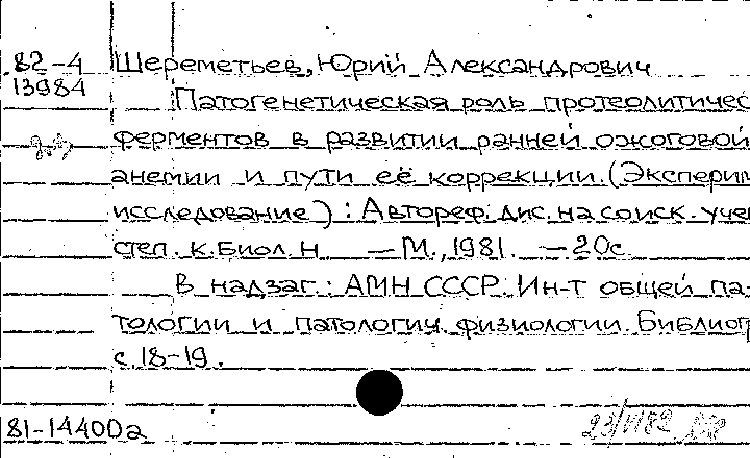 82-4 Шереметьев, Юрий Александрович
13984 Патогенетическая роль протеолитичес
ферментов в развитии ранней ожоговой
анемии и пути её коррекции. (Эксперим
исследование): Автореф. дис. на соиск. учен
степ. к. биол. н. — М., 1981. — 20с.
В надзаг.: АМН СССР. Ин-т общей па-
тологии и патологич. физиологии. Библиогр
с. 18-19.
81-14400а